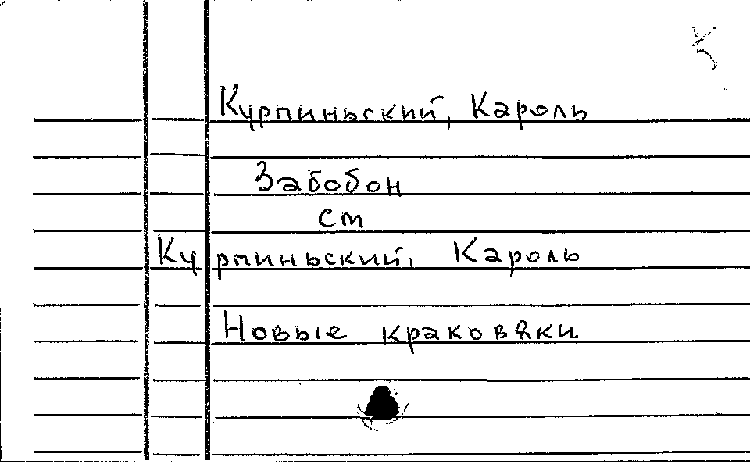 Курпиньский, Кароль
Забобон
см
Курпиньский, Кароль
Новые краковяки